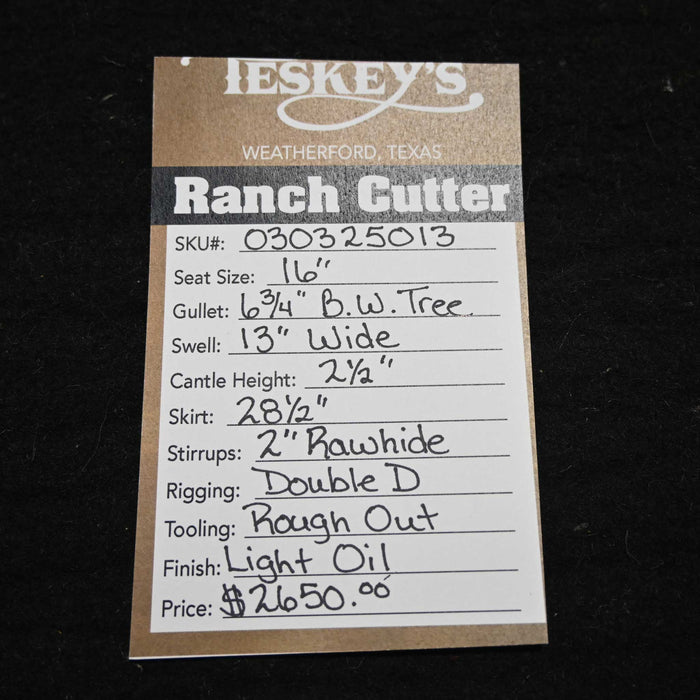 TESKEY'S
WEATHERFORD, TEXAS
Ranch Cutter
SKU#: 030325013
Seat Size: 16"
Gullet: 6 3/4" B.W. Tree.
Swell: 13" Wide
Cantle Height: 2 1/2"
Skirt: 28 1/2"
Stirrups: 2" Rawhide
Rigging: Double D
Tooling: Rough Out
Finish: Light Oil
Price: $2650.00